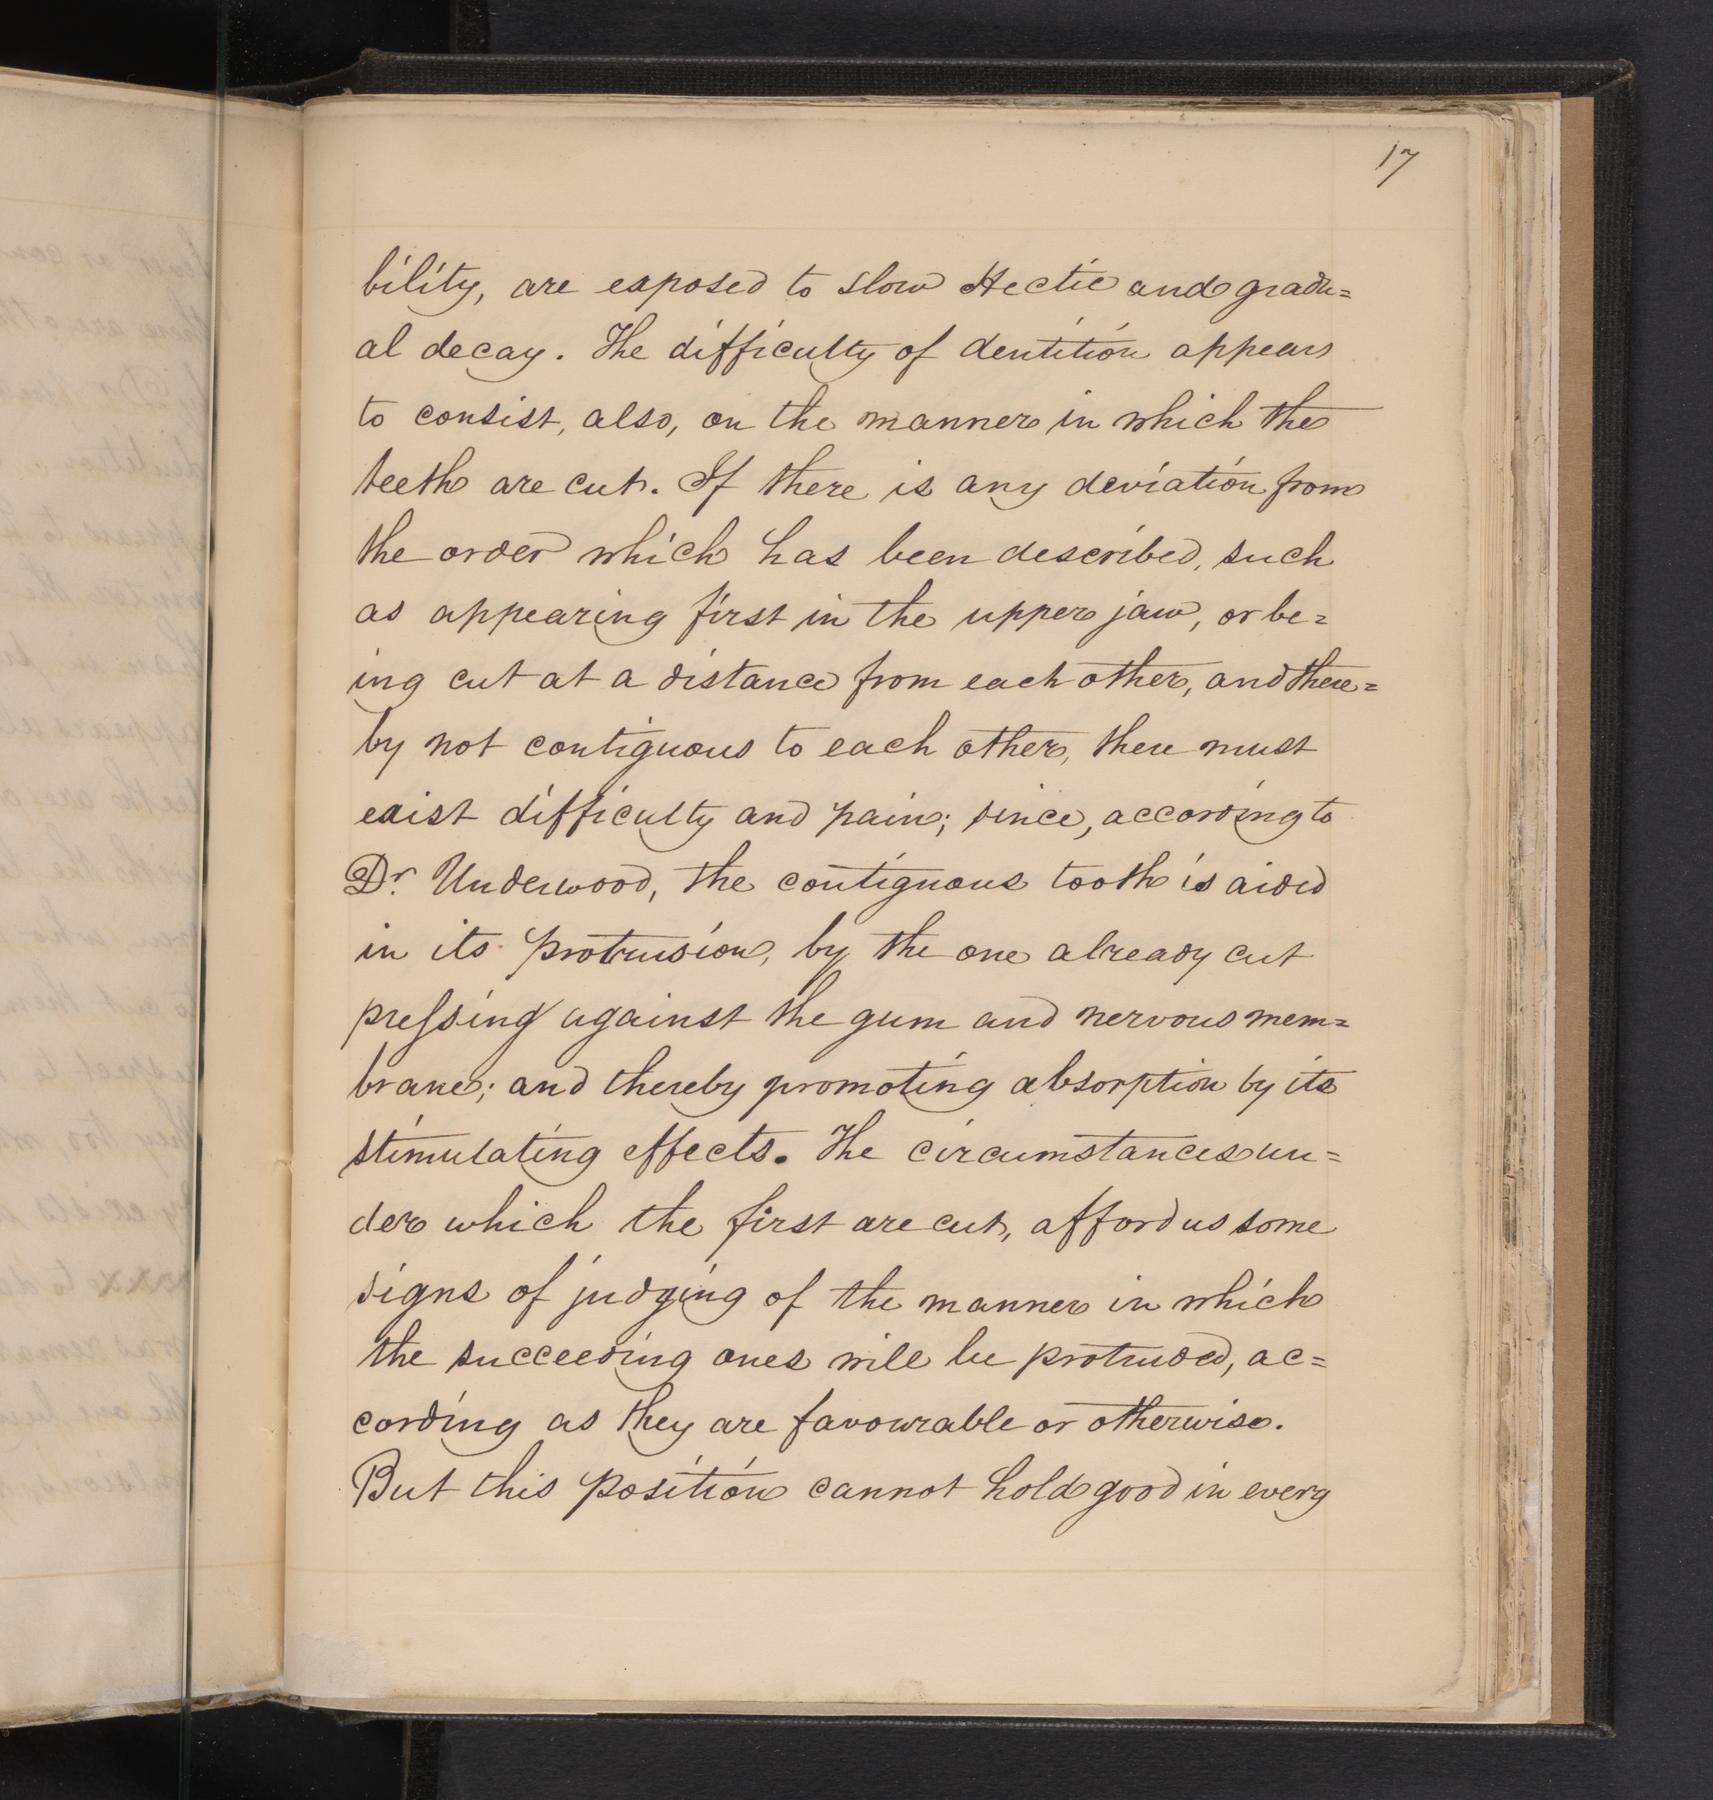 17
bility, are exposed to slow Hectic and gradu=
al decay. The difficulty of dentition appears
to consist, also, on the manner in which the
teeth are cut. If there is any deviation from
the order which has been described, such
as appearing first in the upper jaw, or be=
ing cut at a distance from each other, and there=
by not contiguous to each other, there must
exist difficulty and pain; since, according to
Dr. Underwood, the contiguous tooth is aided
in its protrusion, by the one already cut
pressing against the gum and nervous mem=
brane; and thereby promoting absorption by its
stimulating effects. The circumstances un=
der which the first are cut, afford us some
signs of judging of the manner in which
the succeeding ones will be protruded, ac=
cording as they are favourable or otherwise.
But this position cannot hold good in every